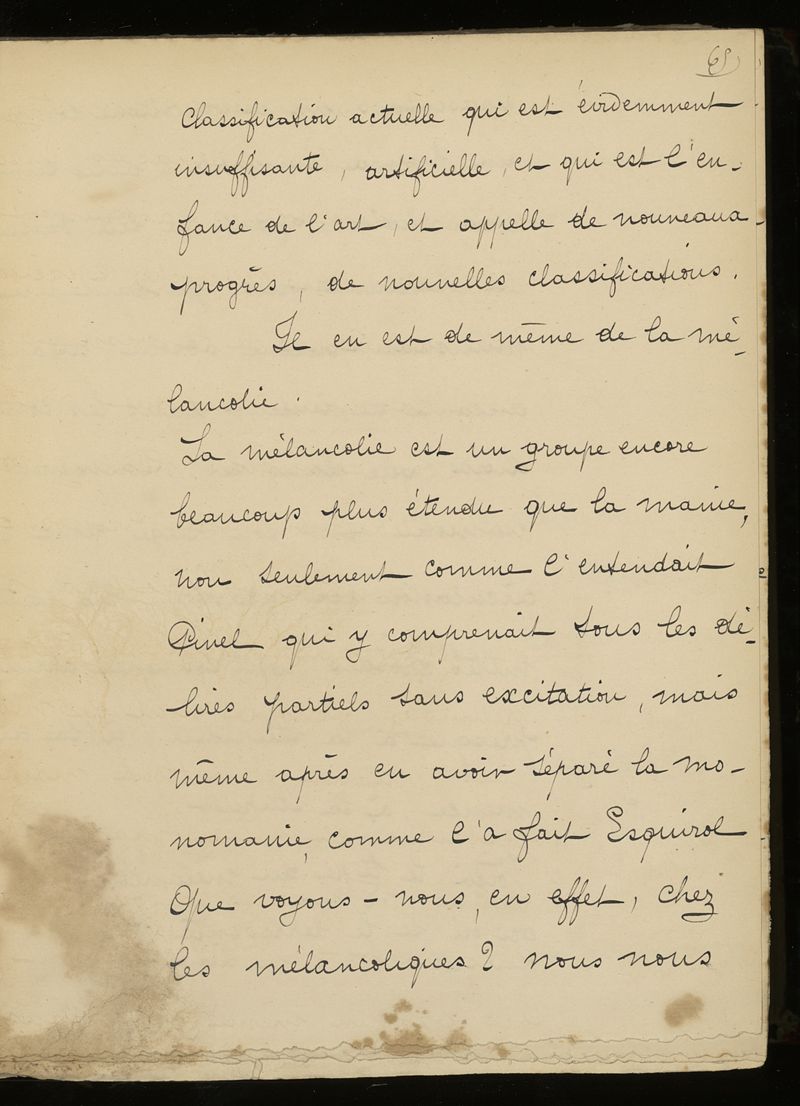 65
classification actuelle qui est évidemment
insuffisante, artificielle, et qui est l'en-
fance de l'art, et appelle de nouveaux
progrès, de nouvelles classifications.
Il en est de même de la mé-
lancolie.
La mélancolie est un groupe encore
beaucoup plus étendu que la manie,
non seulement comme l'entendait
Pinel qui y comprenait tous les dé-
lires partiels sans excitation, mais
même après en avoir séparé la mo-
nomanie, comme l'a fait Esquirol
Que voyons-nous, en effet, chez
les mélancoliques ? nous nous